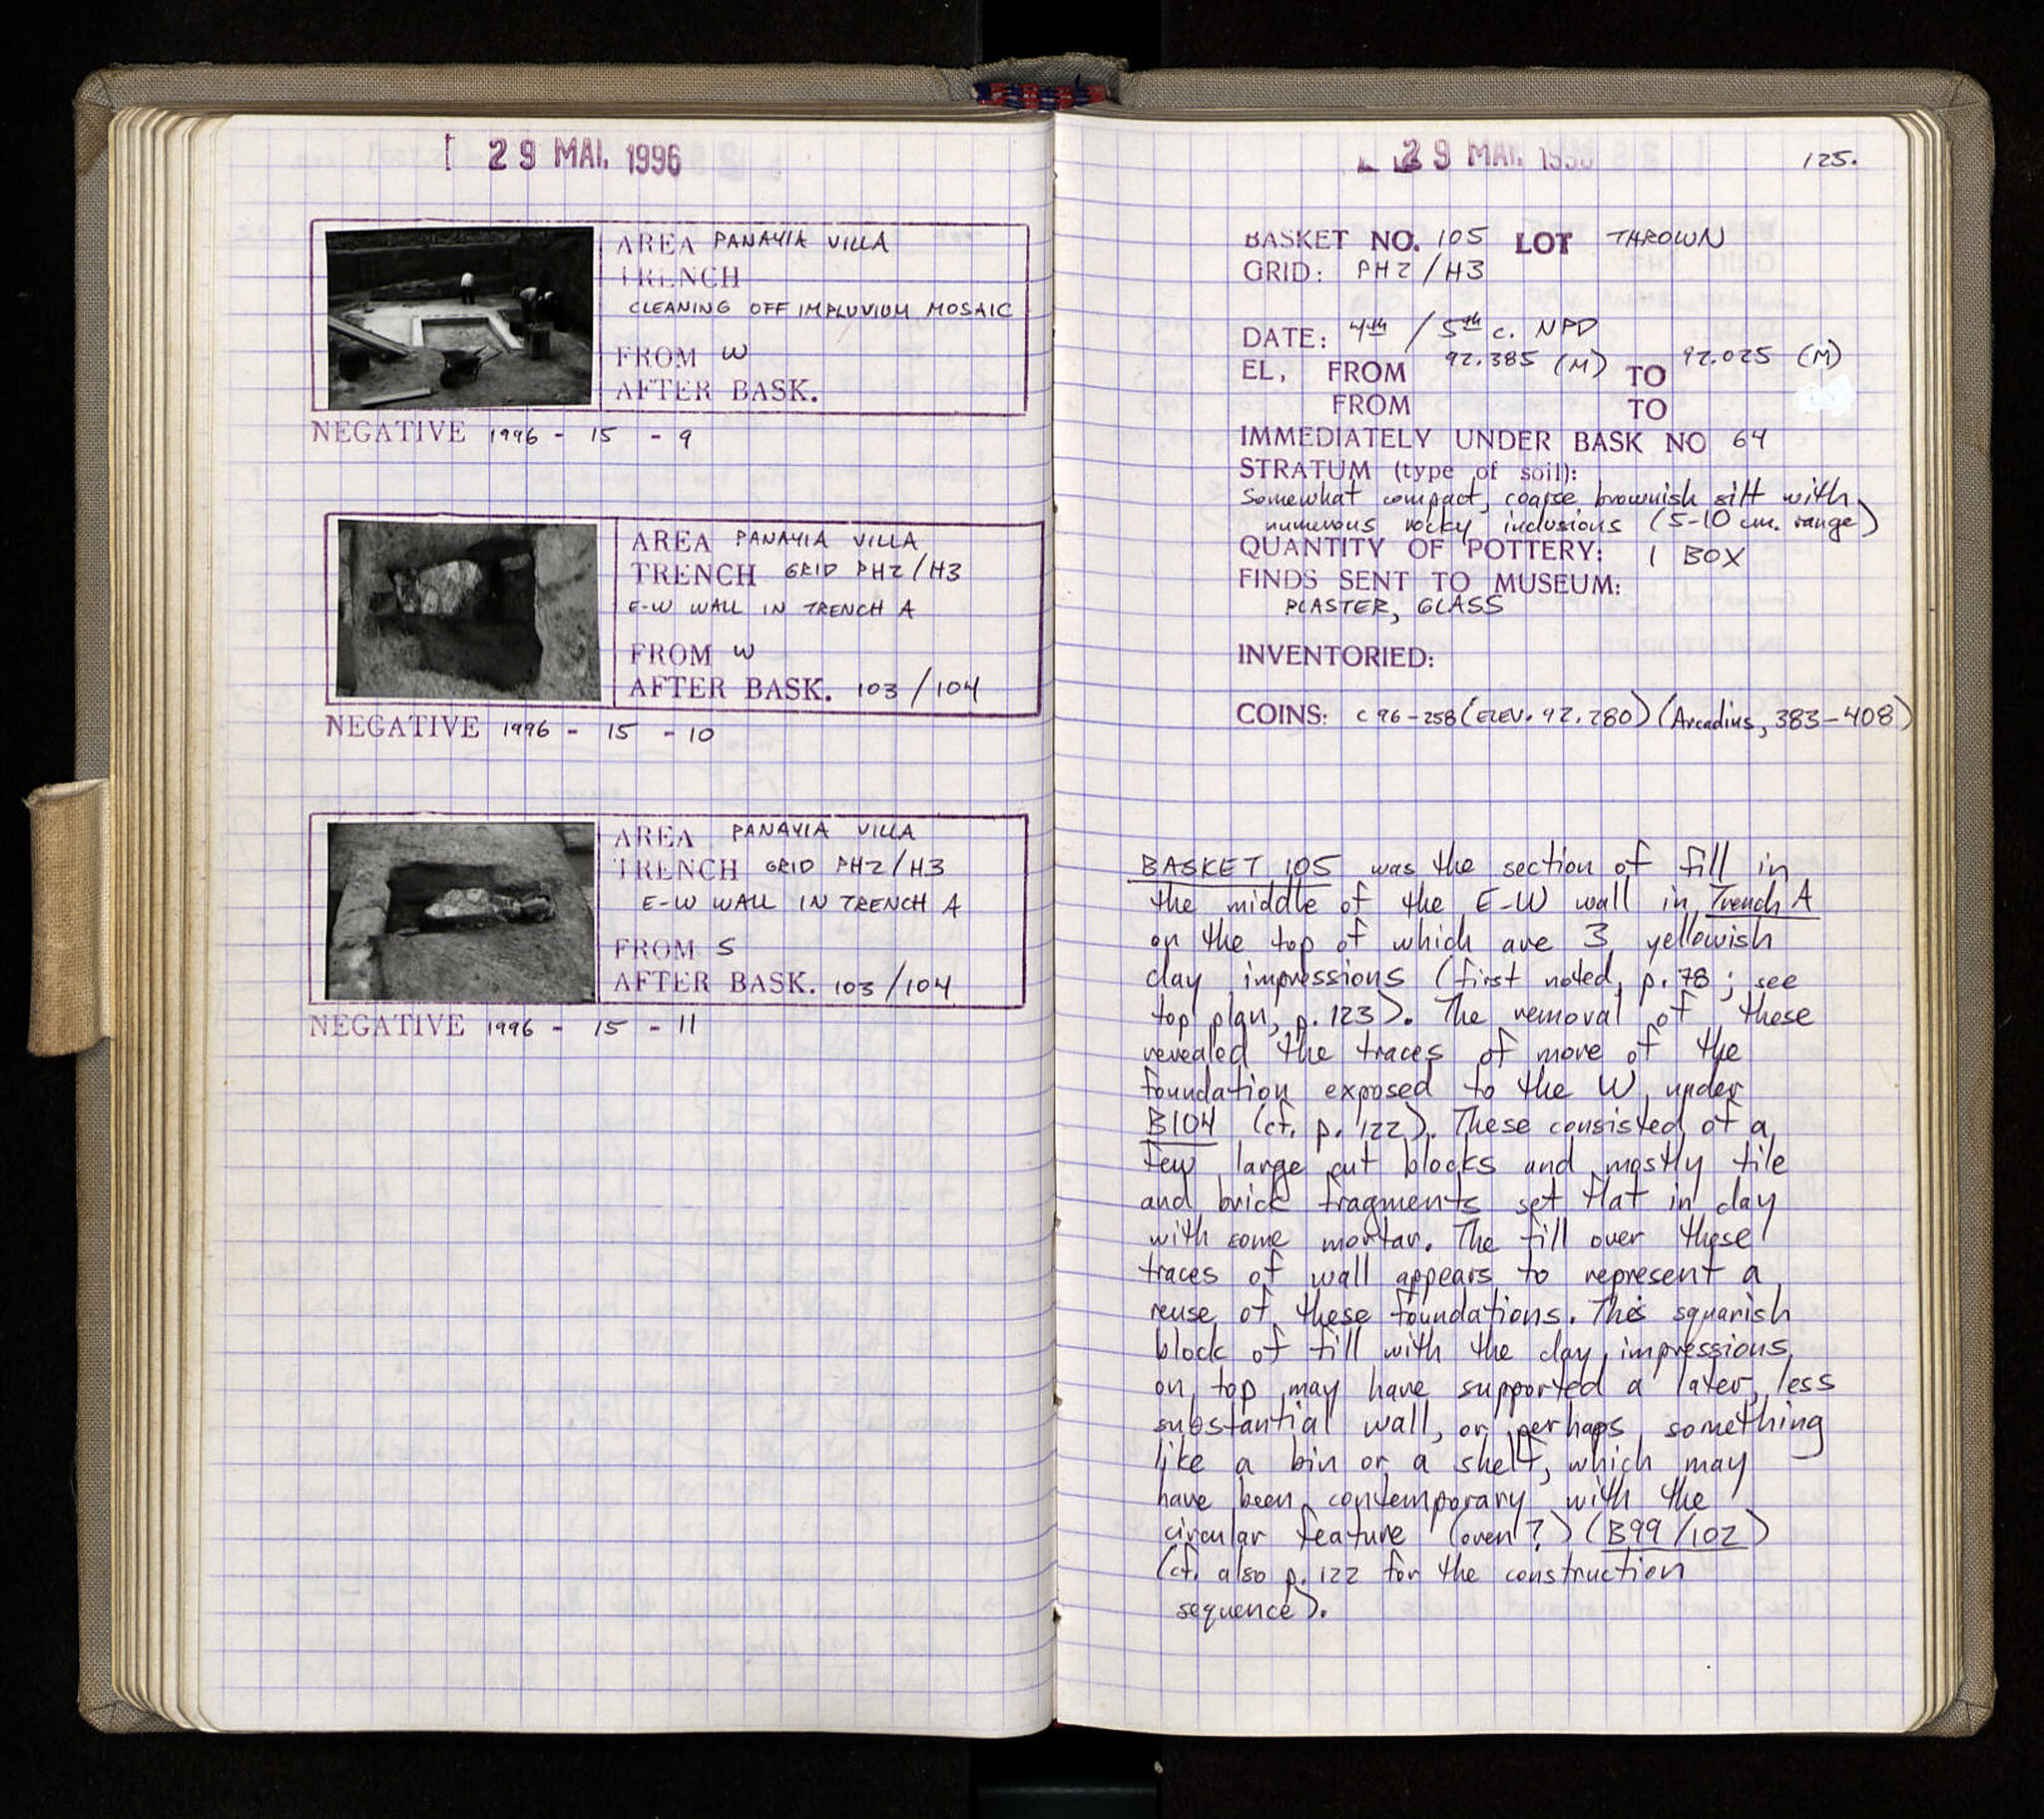 29 MAI. 1996
AREA PANAYIA VILLA
TRENCH
CLEANING OFF IMPLUVIUM MOSAIC
FROM W
AFTER BASK.
NEGATIVE 1996 - 15 - 9
AREA PANAYIA VILLA
TRENCH GRID PH2/H3
E-W WALL IN TRENCH A
FROM W
AFTER BASK. 103/104
NEGATIVE 1996 - 15 - 10
AREA PANAYIA VILLA
TRENCH GRID PH2/H3
E-W WALL IN TRENCH A
FROM S
AFTER BASK. 103/104
NEGATIVE 1996 - 15 - 11
29 MAI. 1996
125.
BASKET NO. 105 LOT THROWN
GRID: PH2/H3
DATE: 4th / 5th c. NPD
EL, FROM 92.385 (M) TO 92.025 (M)
FROM TO
IMMEDIATELY UNDER BASK NO 64
STRATUM (type of soil):
Somewhat compact, coarse brownish silt with
numerous rocky inclusions (5-10 cm. range)
QUANTITY OF POTTERY: 1 BOX
FINDS SENT TO MUSEUM:
PLASTER, GLASS
INVENTORIED:
COINS: C96-258 (ELEV. 92.280) (Arcadius, 383-408)
BASKET 105 was the section of fill in
the middle of the E-W wall in Trench A
on the top of which are 3 yellowish
clay impressions (first noted, p. 78; see
top plan, p. 123). The removal of these
revealed the traces of more of the
foundation exposed to the W, under
B104 (cf. p. 122). These consisted of a
few large cut blocks and mostly tile
and brick fragments set flat in clay
with some mortar. The fill over these
traces of wall appears to represent a
reuse of these foundations. This squarish
block of fill with the clay impressions
on top may have supported a later, less
substantial wall, or perhaps something
like a bin or a shelf, which may
have been contemporary with the
circular feature (oven?) (B99/102)
(cf. also p. 122 for the construction
sequence).